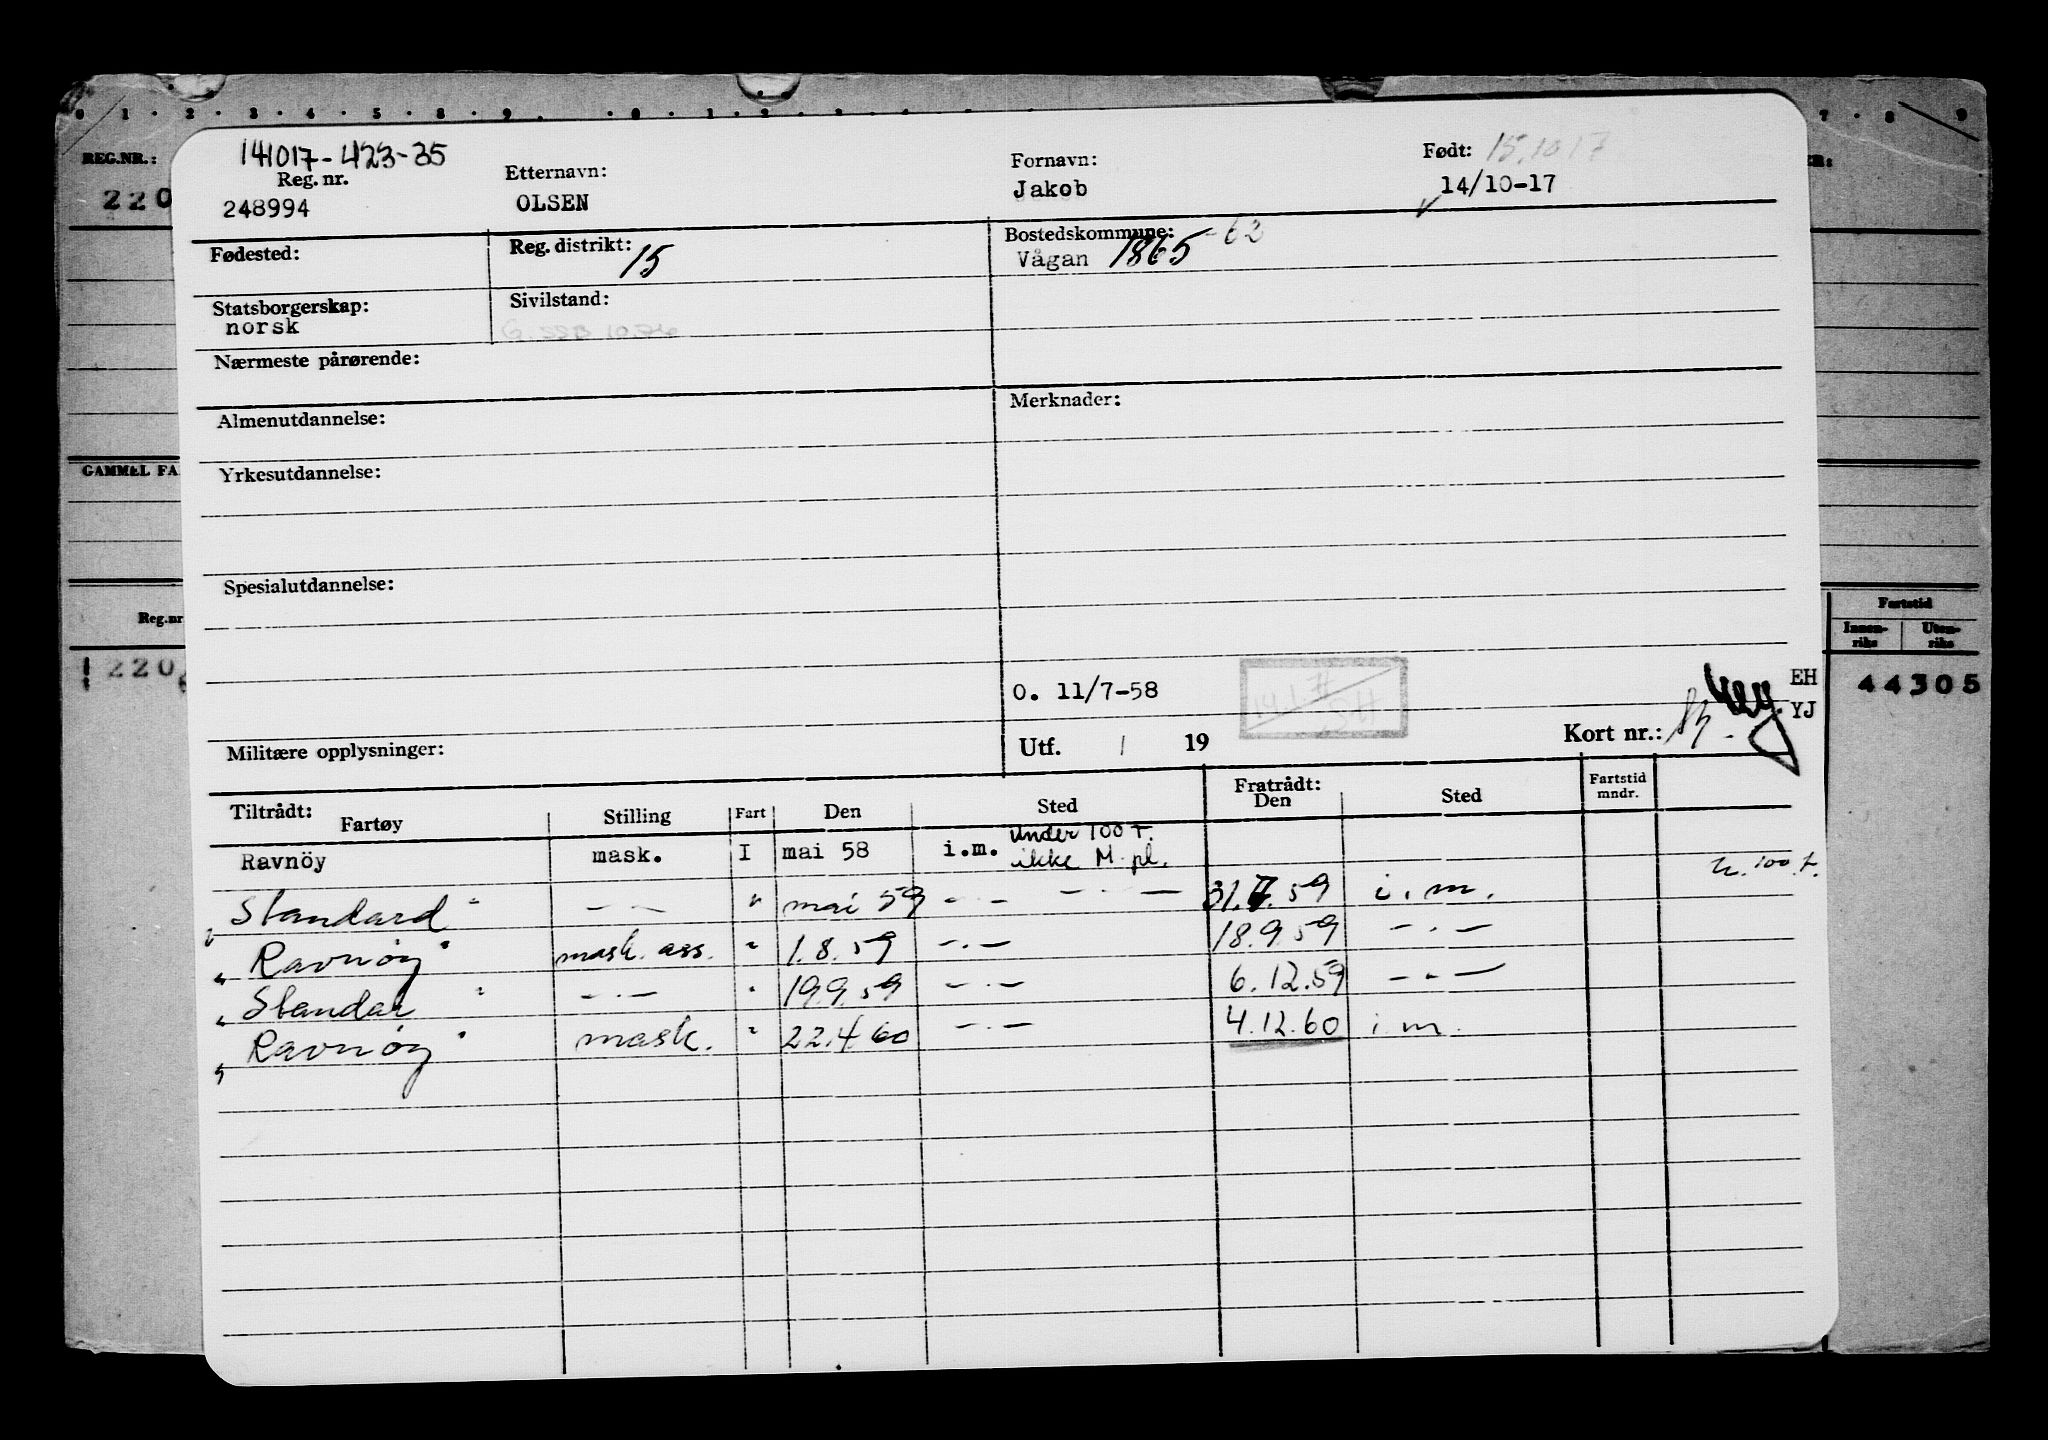 0 . 1 . 2 . 3 . 4 . 5 . 8 . 9 . 0 . 1 . 2 . 7 . 8 . 9
REG.NR.:
220
141017-423-35
Reg. nr.
248994
Etternavn:
OLSEN
Fornavn:
Jakob
Født: 15.10 17
14/10-17
Fødested:
Reg. distrikt: 15
Bostedskommune: -62
Vågan 1865
Statsborgerskap:
norsk
Sivilstand:
Nærmeste pårørende:
Almenutdannelse:
Merknader:
GAMMEL FA
Yrkesutdannelse:
Spesialutdannelse:
Reg.nr
220
Fartstid
Innen-riks Uten-riks
44305
O. 11/7-58
EH
YJ
Militære opplysninger:
Utf. 1 19
Kort nr.:
Tiltrådt:
Fartøy Stilling Fart Den Sted
Fratrådt:
Den Sted Fartstid mndr.
Ravnöy mask. I mai 58 i.m. under 100 T. ikke M. pl.
Standard " -"- " mai 59 -"- -"- 31.7.59 i.m. u. 100 t.
" Ravnöy " mask. ass. " 1.8.59 -"- 18.9.59 -"-
" Standar " -"- " 19.9.59 -"- 6.12.59 -"-
" Ravnöy " mask. " 22.4 60 -"- 4.12.60 i.m.